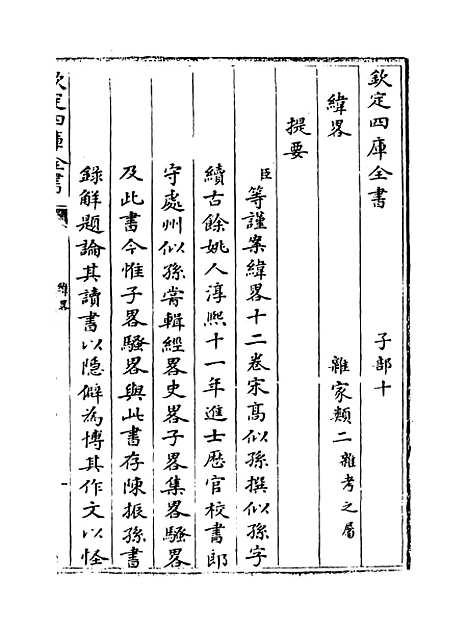 欽定四庫全書
子部十
緯畧
雜家類二雜考之屬
提要
臣等謹案緯畧十二卷宋髙似孫撰似孫字
續古餘姚人淳熙十一年進士歴官校書郎
守處州似孫嘗輯經畧史畧子畧集畧騷畧
及此書今惟子畧騷畧與此書存陳振孫書
錄解題論其讀書以隠僻為博其作文以怪
欽定四庫全書
緯畧
一